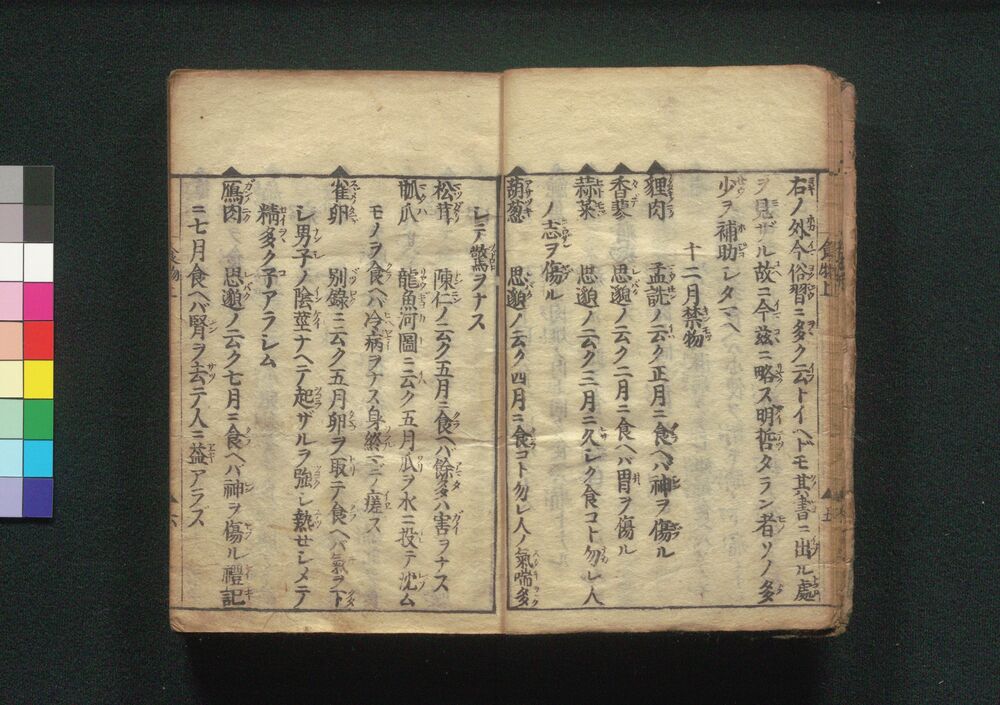 右ノ外今俗習ニ多ク云トイヘドモ其書ニ出ル處
ヲ見ザル故ニ今茲ニ略ス明哲タラン者ソノ多
少ヲ補助シタマヘ
十二月禁物
狸肉 孟詵ノ云ク正月ニ食ヘバ神ヲ傷ル
香蓼 思邈ノ云ク二月ニ食ヘバ胃ヲ傷ル
蒜菜 思邈ノ云ク三月ニ久シク食コト勿レ人
ノ志ヲ傷ル
葫葱 思邈ノ云ク四月ニ食コト勿レ人ノ氣喘多
シテ驚ヲナス
松茸 陳仁ノ云ク五月ニ食ヘバ餘多ハ害ヲナス
瓜 龍魚河圖ニ云ク五月瓜ヲ水ニ投テ沈ム
モノヲ食ヘバ冷病ヲナス身終マデ瘥ス
雀卵 別錄ニ云ク五月卵ヲ取テ食ヘバ氣ヲ下
シ男子ノ陰莖ナヘテ起ザルヲ強シ熱セシメテ
精多ク子アラシム
鴈肉 思邈ノ云ク七月ニ食ヘバ神ヲ傷ル禮記
ニ七月食ヘバ腎ヲ去テ人ニ益アラズ